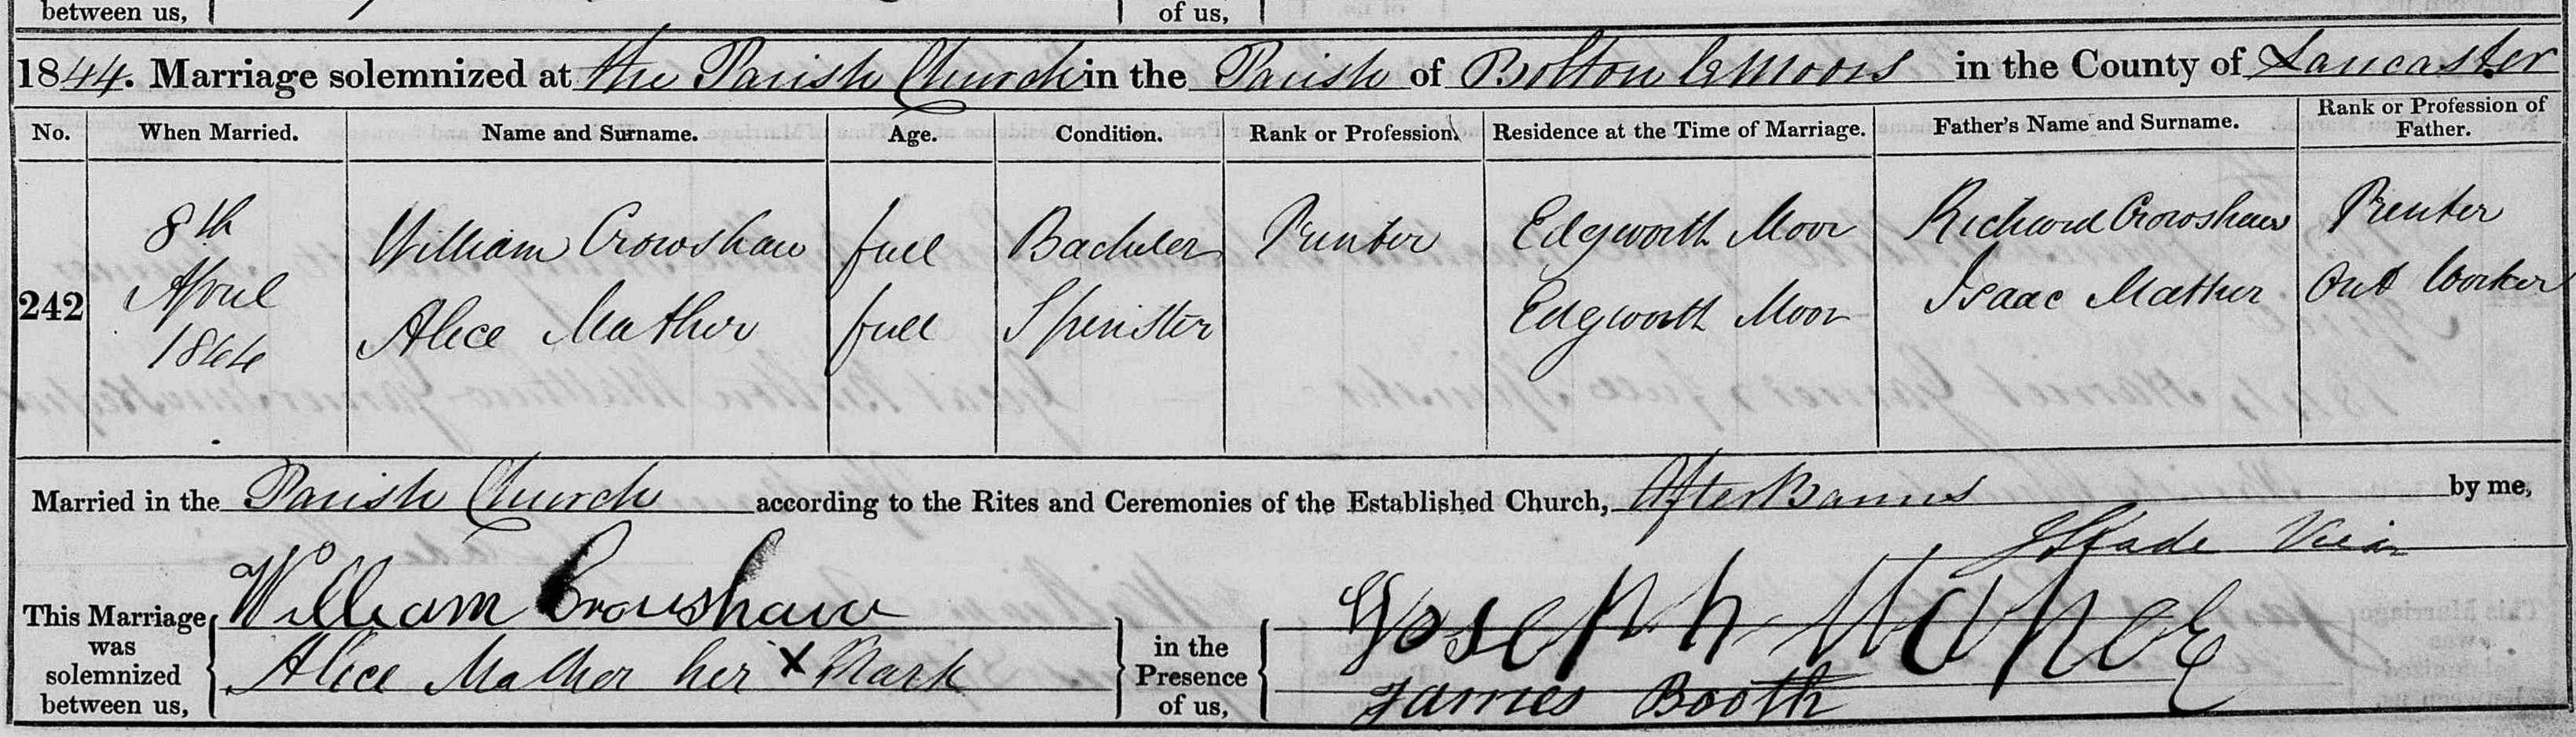 between us, of us,
1844. Marriage solemnized at the Parish Church in the Parish of Bolton le Moors in the County of Lancaster
No. When Married. Name and Surname. Age. Condition. Rank or Profession. Residence at the Time of Marriage. Father's Name and Surname. Rank or Profession of Father.
8th William Crowshaw full Bachelor Printer Edgworth Moor Richard Crowshaw Printer
242 April Alice Mather full Spinster Edgworth Moor Isaac Mather Out Worker
1844
Married in the Parish Church according to the Rites and Ceremonies of the Established Church, After Banns by me,
JSlade Vicar
This Marriage was solemnized between us, William Crowshaw
Alice Mather her X Mark
in the Presence of us, Joseph
James Booth